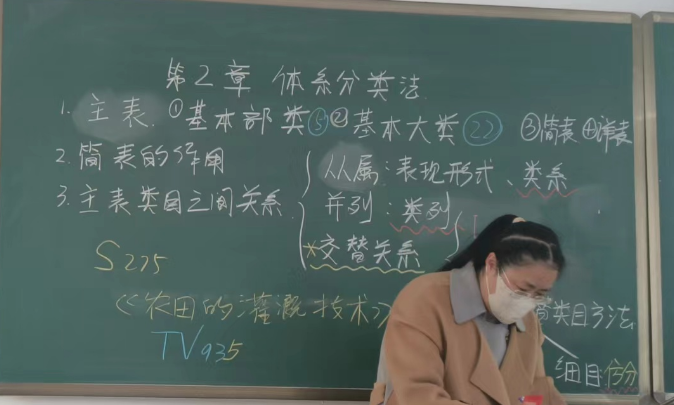 第2章 体系分类法
1. 主表. ①基本部类⑤ ②基本大类㉒ ③简表 ④详表
2. 简表的作用
3. 主表类目之间关系
从属: 表现形式、类系
并列: 类列
*交替关系
S275
《农田的灌溉技术》
类目方法
TV935
细目: 仿分